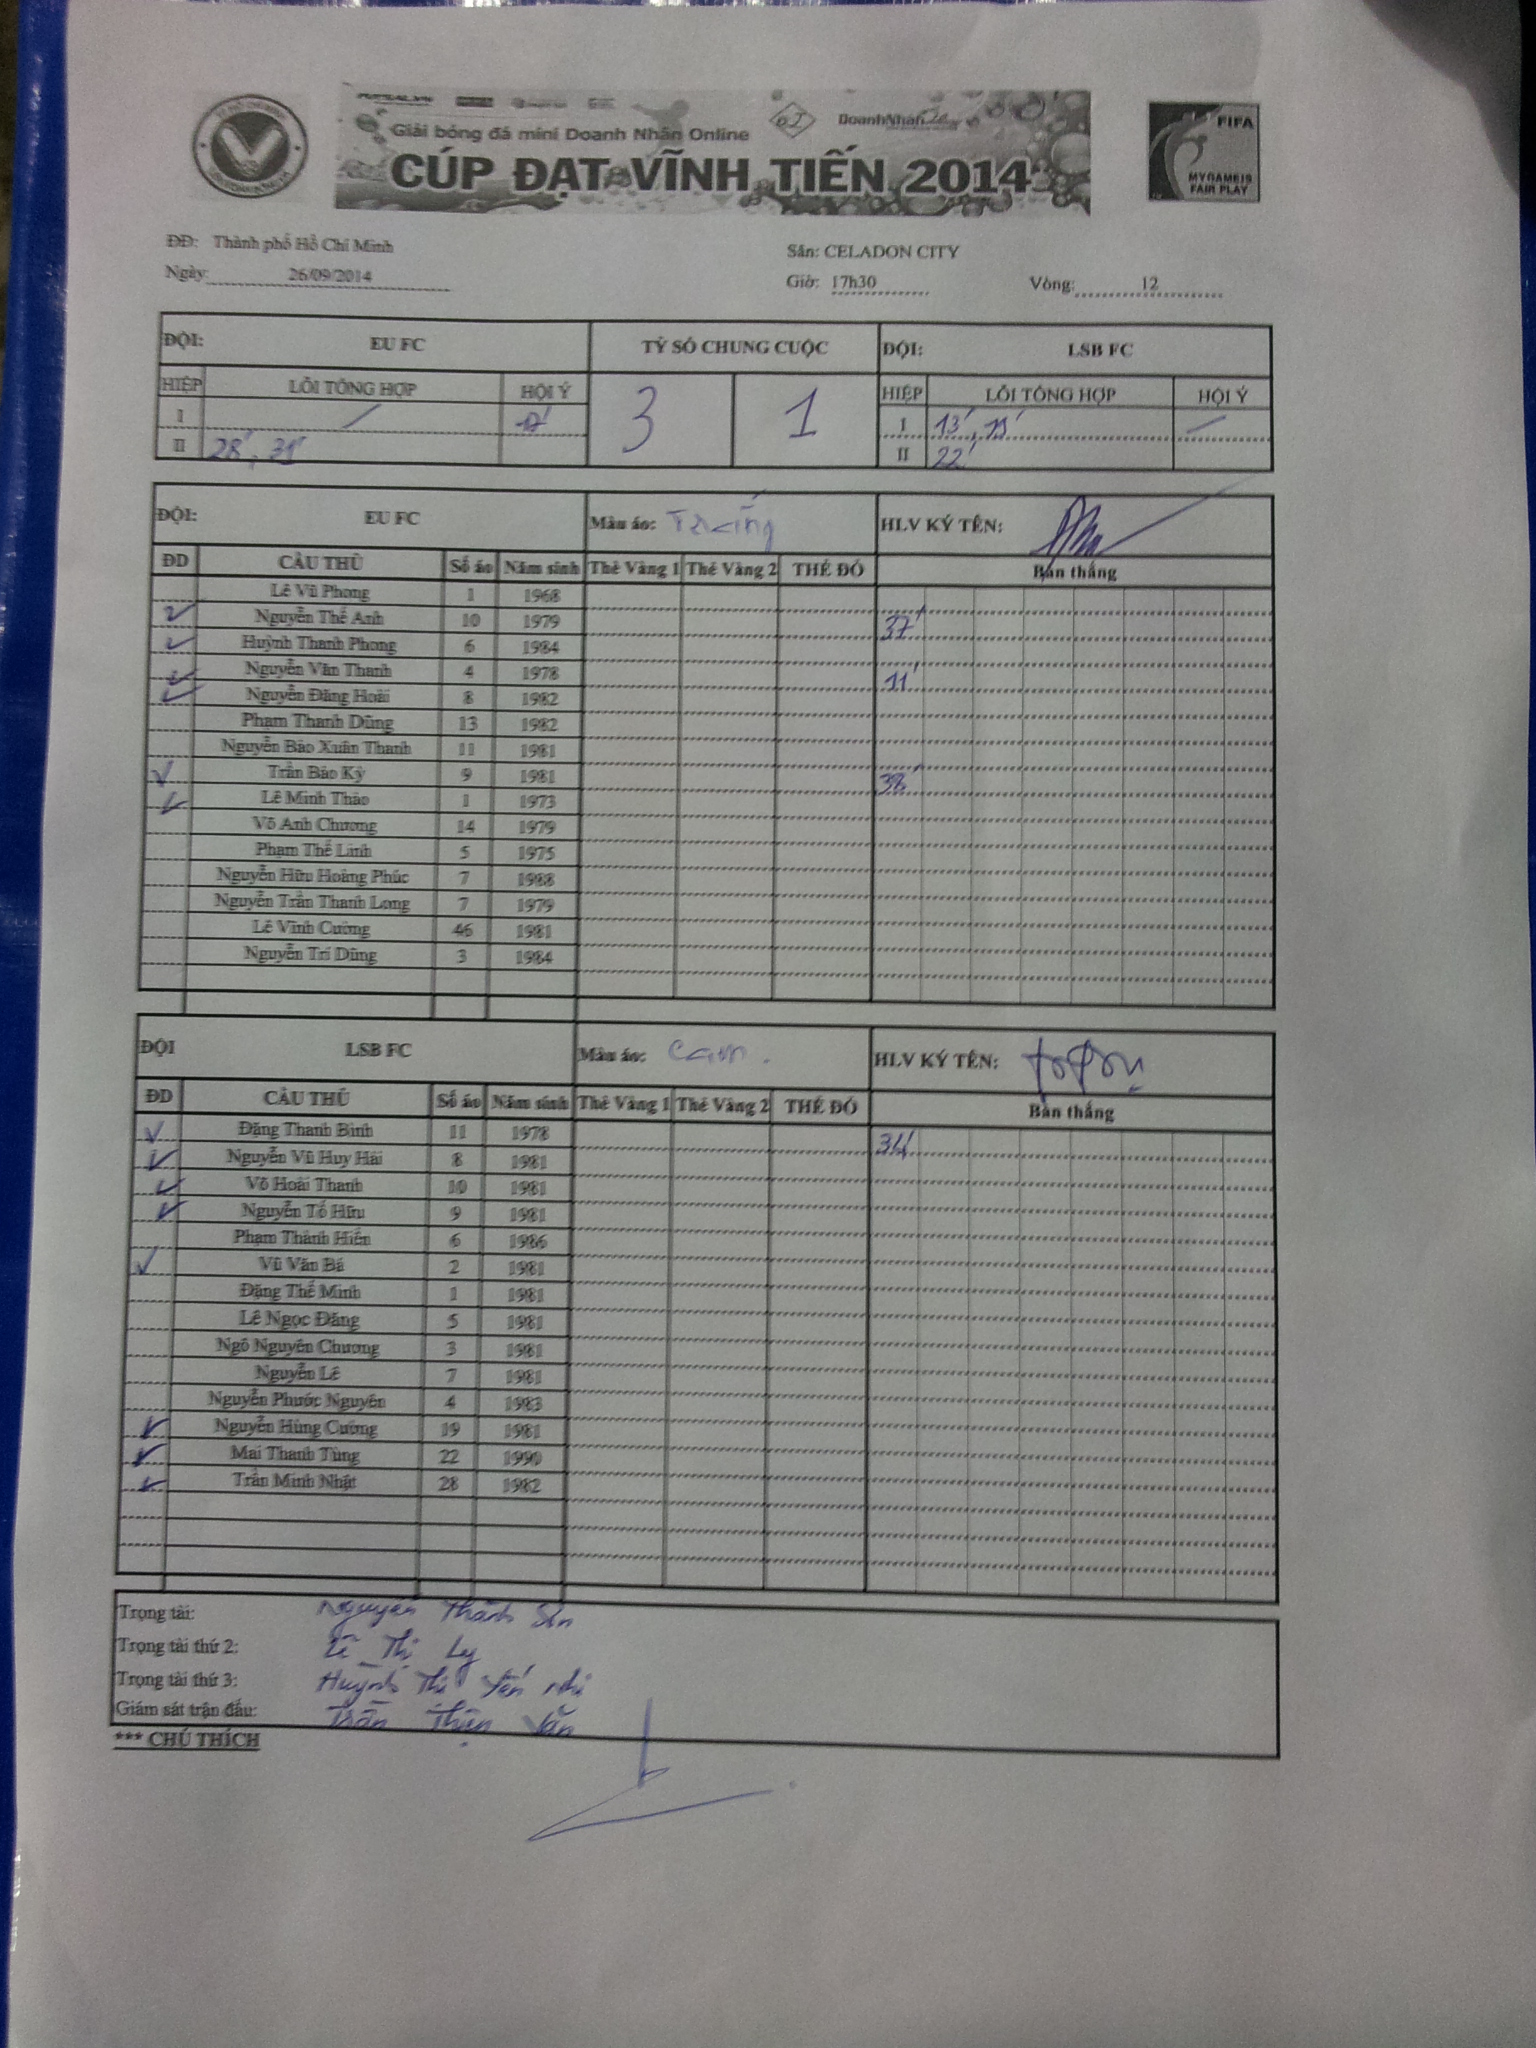 Giải bóng đá mini Doanh Nhân Online
DoanhNhân
CÚP ĐẠT VĨNH TIẾN 2014
FIFA
MY GAME IS
FAIR PLAY
ĐĐ: Thành phố Hồ Chí Minh
Sân: CELADON CITY
Ngày: 26/09/2014
Giờ: 17h30 Vòng: 12
ĐỘI: EU FC TỶ SỐ CHUNG CUỘC ĐỘI: LSB FC
HIỆP LỖI TỔNG HỢP HỘI Ý 3 1 HIỆP LỖI TỔNG HỢP HỘI Ý
I / I 13', /
II 28', 31' II 22'
ĐỘI: EU FC Màu áo: Trắng HLV KÝ TÊN:
ĐD CẦU THỦ Số áo Năm sinh Thẻ Vàng 1 Thẻ Vàng 2 THẺ ĐỎ Bàn thắng
Lê Vũ Phong 1 1968
✓ Nguyễn Thế Anh 10 1979 37'
✓ Huỳnh Thanh Phong 6 1984
✓ Nguyễn Văn Thanh 4 1978 11'
✓ Nguyễn Đăng Hoài 8 1982
Phạm Thanh Dũng 13 1982
Nguyễn Bảo Xuân Thanh 11 1981
✓ Trần Bảo Kỳ 9 1981 38'
✓ Lê Minh Thảo 1 1973
Võ Anh Chương 14 1979
Phạm Thế Linh 5 1975
Nguyễn Hữu Hoàng Phúc 7 1988
Nguyễn Trần Thanh Long 7 1979
Lê Vĩnh Cường 46 1981
Nguyễn Trí Dũng 3 1984
ĐỘI LSB FC Màu áo: Cam. HLV KÝ TÊN:
ĐD CẦU THỦ Số áo Năm sinh Thẻ Vàng 1 Thẻ Vàng 2 THẺ ĐỎ Bàn thắng
✓ Đặng Thanh Bình 11 1978 34'
✓ Nguyễn Vũ Huy Hải 8 1981
✓ Võ Hoài Thanh 10 1981
✓ Nguyễn Tố Hữu 9 1981
Phạm Thành Hiển 6 1986
✓ Vũ Văn Bá 2 1981
Đặng Thế Minh 1 1981
Lê Ngọc Đăng 5 1981
Ngô Nguyên Chương 3 1981
Nguyễn Lê 7 1981
Nguyễn Phước Nguyên 4 1983
✓ Nguyễn Hùng Cường 19 1981
✓ Mai Thanh Tùng 22 1990
✓ Trần Minh Nhật 28 1982
Trọng tài: Nguyễn Thành
Trọng tài thứ 2: Lê Thị Ly
Trọng tài thứ 3: Huỳnh Thị Yến Nhi
Giám sát trận đấu: Trần Thiện Văn
*** CHÚ THÍCH